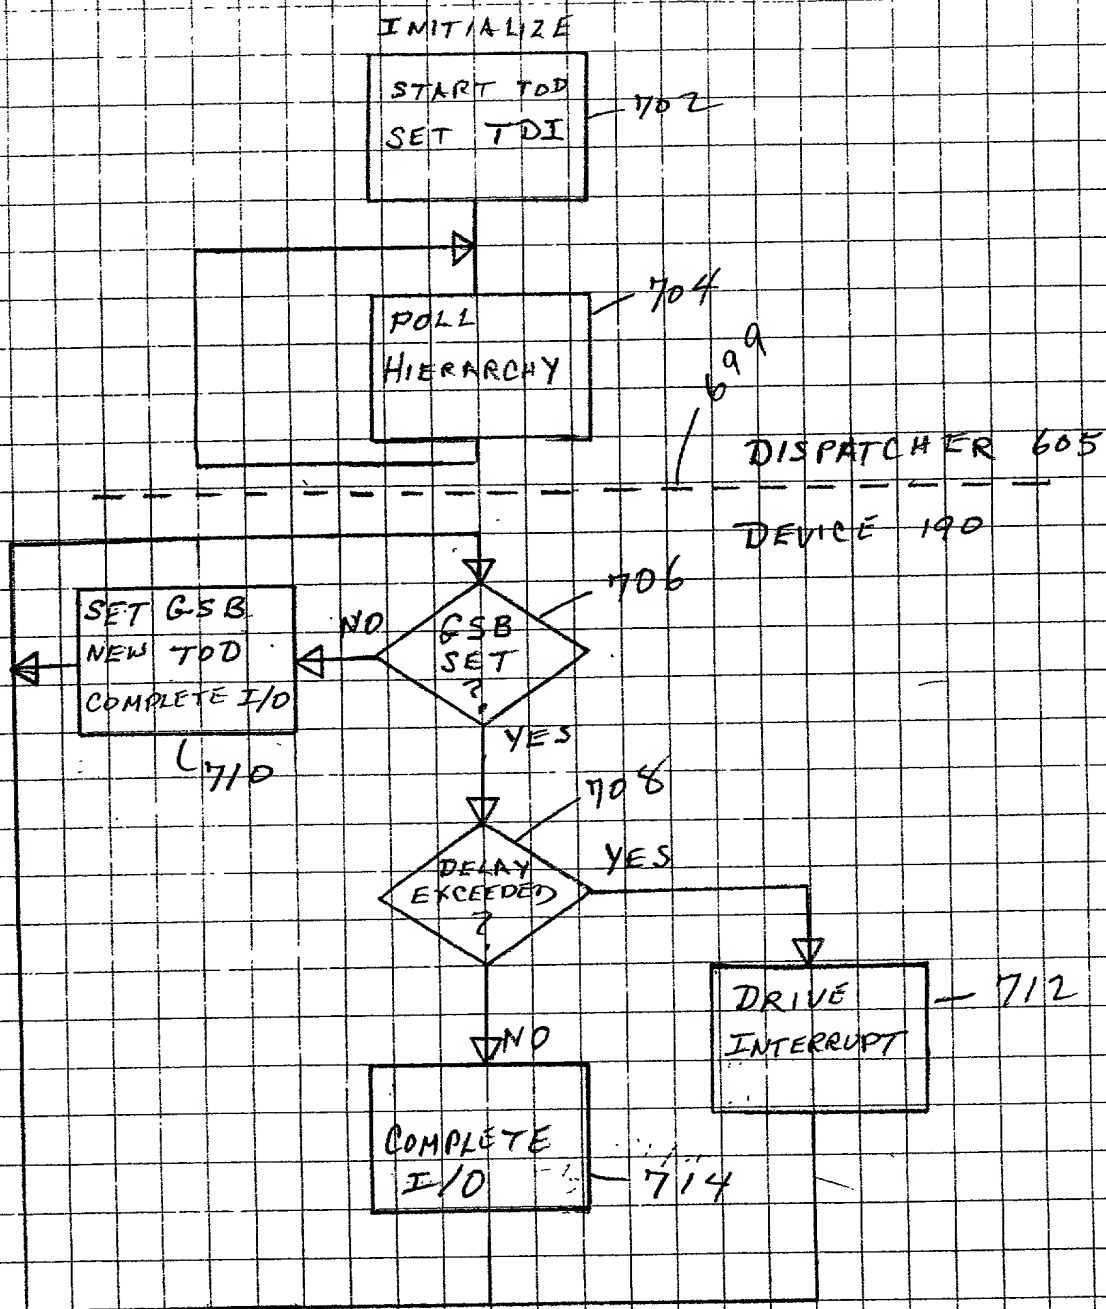 INITIALIZE
START TOD
SET TDI
702
POLL
HIERARCHY
704
699
DISPATCHER 605
DEVICE 190
706
GSB
SET
?
NO
SET GSB
NEW TOD
COMPLETE I/O
710
YES
708
DELAY
EXCEEDED
?
YES
DRIVE
INTERRUPT
712
NO
COMPLETE
I/O
714